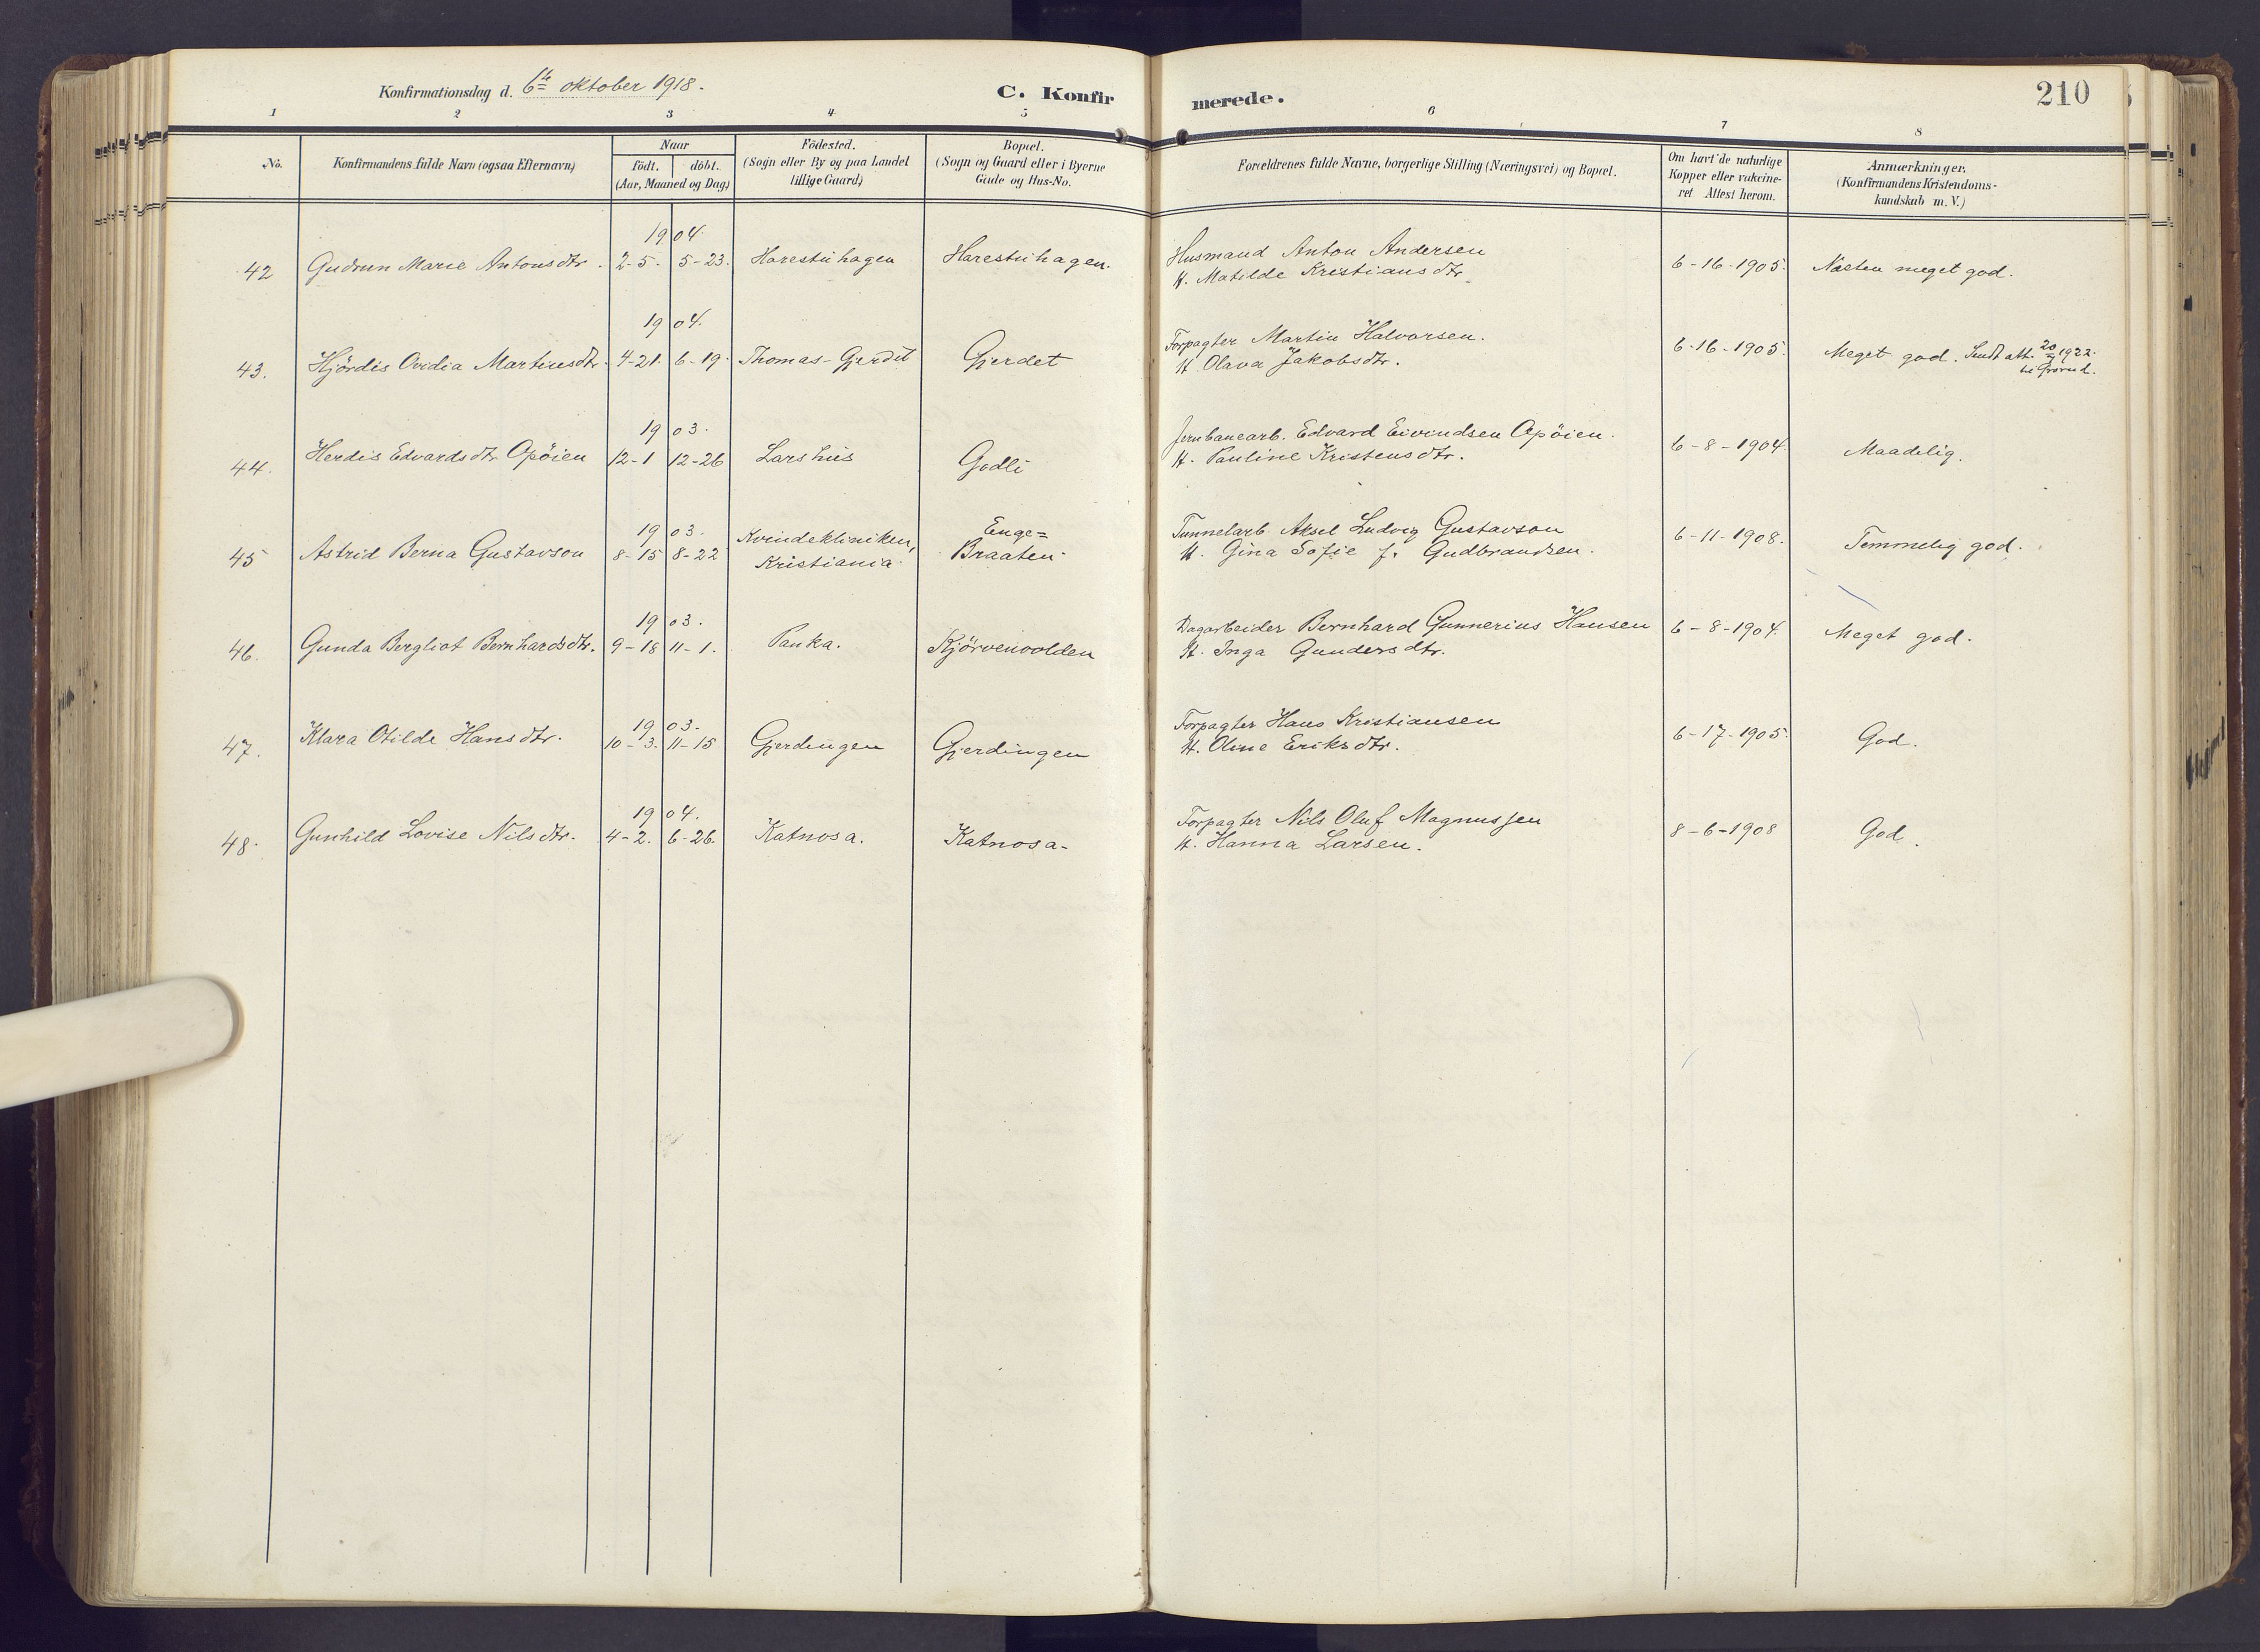 Konfirmationsdag d. 6te oktober 1918.
C. Konfirmerede.
210
1 2 3 4 5 6 7 8
No.
Konfirmandens fulde Navn (ogsaa Efternavn)
Naar
födt. döbt.
(Aar, Maaned og Dag)
Födested.
(Sogn eller By og paa Landet
tillige Gaard)
Bopæl.
(Sogn og Gaard eller i Byerne
Gade og Hus-No.
Forældrenes fulde Navne, borgerlige Stilling (Næringsvei) og Bopæl.
Om havt de naturlige
Kopper eller vakcine-
ret Attest herom.
Anmærkninger.
(Konfirmandens Kristendoms-
kundskab m. V.)
1904
42 Gudrun Marie Antonsdtr. 2-5. 5-23. Harestuhagen Harestuhagen. Husmand Anton Andersen 6-16-1905. Næsten meget god.
H. Matilde Kristiansdtr.
1904.
43. Hjördis Ovidia Martinsdtr. 4-21. 6-19. Thomas-Gjerdet Gjerdet Forpagter Martin Halvorsen. 6-16-1905. Meget god. Sendt att. 20/ 1922.
H. Olava Jakobsdtr. til Grorud.
1903.
44. Herdis Edvardsdtr. Opöien 12-1 12-26 Larshus Godli Jernbanearb. Edvard Eivindsen Opöien. 6-8-1904. Maadelig.
H. Pauline Kristensdtr.
1903.
45 Astrid Berna Gustavson 8-15 8-22 Kvindekliniken, Kristiania. Enge=Braaten. Tunnelarb Aksel Ludvig Gustavson 6-11-1908. Temmelig god.
H. Gina Sofie f. Gudbrandsen.
1903.
46. Gunda Bergliot Bernhardsdtr. 9-18 11-1. Panka. Kjörvenvolden Dagarbeider Bernhard Gunnerius Hansen 6-8-1904. Meget god.
H. Inga Gundersdtr.
1903.
47. Klara Otilde Hansdtr. 10-3. 11-15 Gjerdingen Gjerdingen Forpagter Hans Kristiansen 6-17-1905. God.
H. Oline Eriksdtr.
1904.
48. Gunhild Lovise Nilsdtr. 4-2. 6-26. Katnosa. Katnosa. Forpagter Nils Oluf Magnussen 8-6-1908 God.
H. Hanna Larsen.